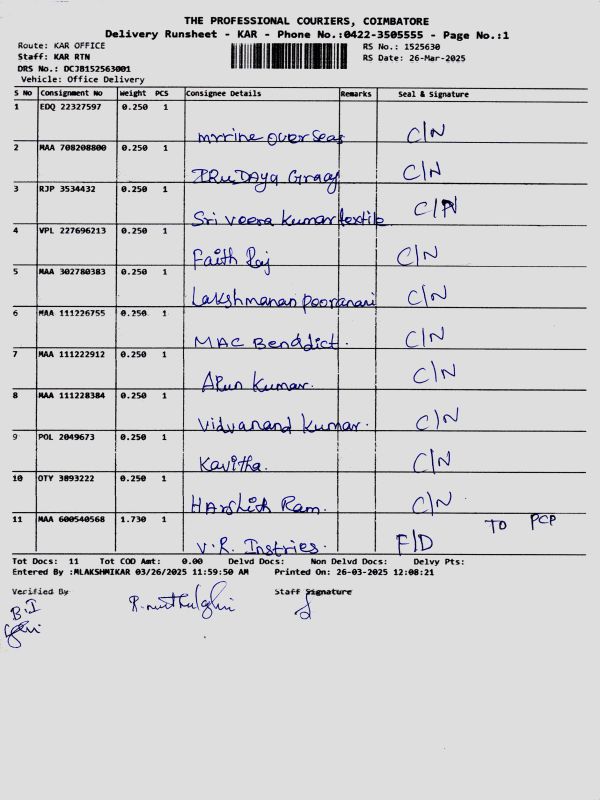 THE PROFESSIONAL COURIERS, COIMBATORE
Delivery Runsheet - KAR - Phone No.:0422-3505555 - Page No.:1
Route: KAR OFFICE RS No.: 1525630
Staff: KAR RTN RS Date: 26-Mar-2025
DRS No.: DCJB152563001
Vehicle: Office Delivery
S No Consignment No Weight PCS Consignee Details Remarks Seal & Signature
1 EDQ 22327597 0.250 1
mrrine overseas C/N
2 MAA 708208800 0.250 1
IRuDAya Graaj C/N
3 RJP 3534432 0.250 1
Sri veera kumar textile C/N
4 VPL 227696213 0.250 1
Faith Raj C/N
5 MAA 302780383 0.250 1
Lakshmanan pooranani C/N
6 MAA 111226755 0.250 1
MAC Benddict. C/N
7 MAA 111222912 0.250 1
Arun kumar. C/N
8 MAA 111228384 0.250 1
Vidyanand kumar. C/N
9 POL 2049673 0.250 1
Kavitha. C/N
10 OTY 3893222 0.250 1
Harshith Ram. C/N
11 MAA 600540568 1.730 1 TO PCP
V.R. Instries. F/D
Tot Docs: 11 Tot COD Amt: 0.00 Delvd Docs: Non Delvd Docs: Delvy Pts:
Entered By :MLAKSHMIKAR 03/26/2025 11:59:50 AM Printed On: 26-03-2025 12:08:21
Verified By Staff Signature
B.I